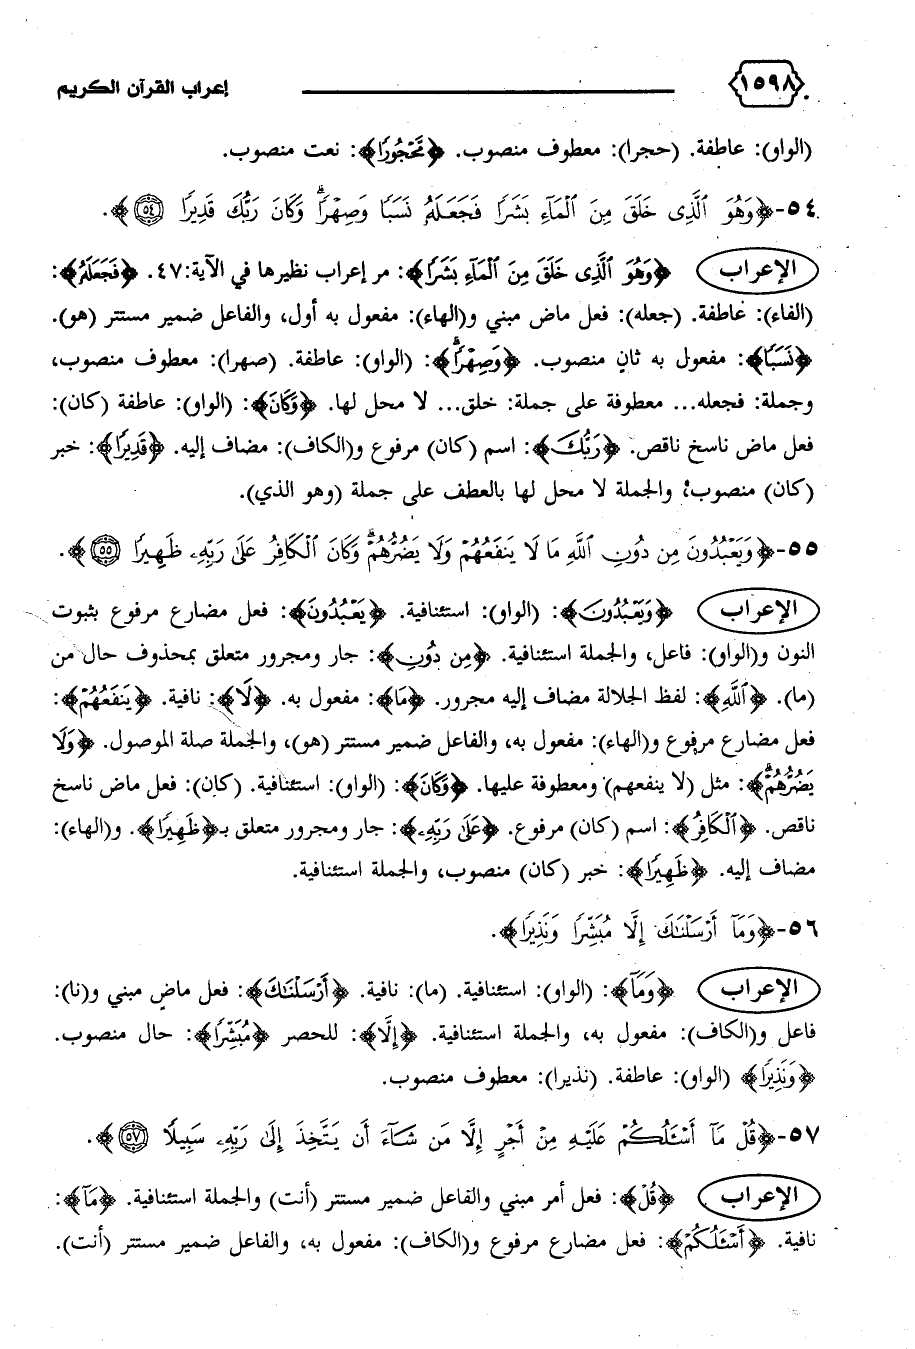 ١٥٩٨ إعراب القرآن الكريم
(الواو): عاطفة. (حجرا): معطوف منصوب. ﴿مَّحْجُورًا﴾: نعت منصوب.
٥٤-﴿وَهُوَ ٱلَّذِى خَلَقَ مِنَ ٱلْمَآءِ بَشَرًا فَجَعَلَهُۥ نَسَبًا وَصِهْرًاۗ وَكَانَ رَبُّكَ قَدِيرًا ٥٤﴾.
الإعراب ﴿وَهُوَ ٱلَّذِى خَلَقَ مِنَ ٱلْمَآءِ بَشَرًا﴾: مر إعراب نظيرها في الآية:٤٧. ﴿فَجَعَلَهُۥ﴾:
(الفاء): عاطفة. (جعله): فعل ماض مبني و(الهاء): مفعول به أول، والفاعل ضمير مستتر (هو).
﴿نَسَبًا﴾: مفعول به ثانٍ منصوب. ﴿وَصِهْرًاۗ﴾: (الواو): عاطفة. (صهرا): معطوف منصوب،
وجملة: فجعله... معطوفة على جملة: خلق... لا محل لها. ﴿وَكَانَ﴾: (الواو): عاطفة (كان):
فعل ماض ناسخ ناقص. ﴿رَبُّكَ﴾: اسم (كان) مرفوع و(الكاف): مضاف إليه. ﴿قَدِيرًا﴾: خبر
(كان) منصوب؛ والجملة لا محل لها بالعطف على جملة (وهو الذي).
٥٥-﴿وَيَعْبُدُونَ مِن دُونِ ٱللَّهِ مَا لَا يَنفَعُهُمْ وَلَا يَضُرُّهُمْۗ وَكَانَ ٱلْكَافِرُ عَلَىٰ رَبِّهِۦ ظَهِيرًا ٥٥﴾.
الإعراب ﴿وَيَعْبُدُونَ﴾: (الواو): استئنافية. ﴿يَعْبُدُونَ﴾: فعل مضارع مرفوع بثبوت
النون و(الواو): فاعل، والجملة استئنافية. ﴿مِن دُونِ﴾: جار ومجرور متعلق بمحذوف حال من
(ما). ﴿ٱللَّهِ﴾: لفظ الجلالة مضاف إليه مجرور. ﴿مَا﴾: مفعول به. ﴿لَا﴾: نافية. ﴿يَنفَعُهُمْ﴾:
فعل مضارع مرفوع و(الهاء): مفعول به، والفاعل ضمير مستتر (هو)، والجملة صلة الموصول. ﴿وَلَا
يَضُرُّهُمْۗ﴾: مثل (لا ينفعهم) ومعطوفة عليها. ﴿وَكَانَ﴾: (الواو): استئنافية. (كان): فعل ماض ناسخ
ناقص. ﴿ٱلْكَافِرُ﴾: اسم (كان) مرفوع. ﴿عَلَىٰ رَبِّهِۦ﴾: جار ومجرور متعلق بـ﴿ظَهِيرًا﴾. و(الهاء):
مضاف إليه. ﴿ظَهِيرًا﴾: خبر (كان) منصوب، والجملة استئنافية.
٥٦-﴿وَمَآ أَرْسَلْنَٰكَ إِلَّا مُبَشِّرًا وَنَذِيرًا﴾.
الإعراب ﴿وَمَآ﴾: (الواو): استئنافية. (ما): نافية. ﴿أَرْسَلْنَٰكَ﴾: فعل ماضٍ مبني و(نا):
فاعل و(الكاف): مفعول به، والجملة استئنافية. ﴿إِلَّا﴾: للحصر ﴿مُبَشِّرًا﴾: حال منصوب.
﴿وَنَذِيرًا﴾ (الواو): عاطفة. (نذيرا): معطوف منصوب.
٥٧-﴿قُلْ مَآ أَسْـَٔلُكُمْ عَلَيْهِ مِنْ أَجْرٍ إِلَّا مَن شَآءَ أَن يَتَّخِذَ إِلَىٰ رَبِّهِۦ سَبِيلًا ٥٧﴾.
الإعراب ﴿قُلْ﴾: فعل أمر مبني والفاعل ضمير مستتر (أنت) والجملة استئنافية. ﴿مَآ﴾:
نافية. ﴿أَسْـَٔلُكُمْ﴾: فعل مضارع مرفوع و(الكاف): مفعول به، والفاعل ضمير مستتر (أنت).